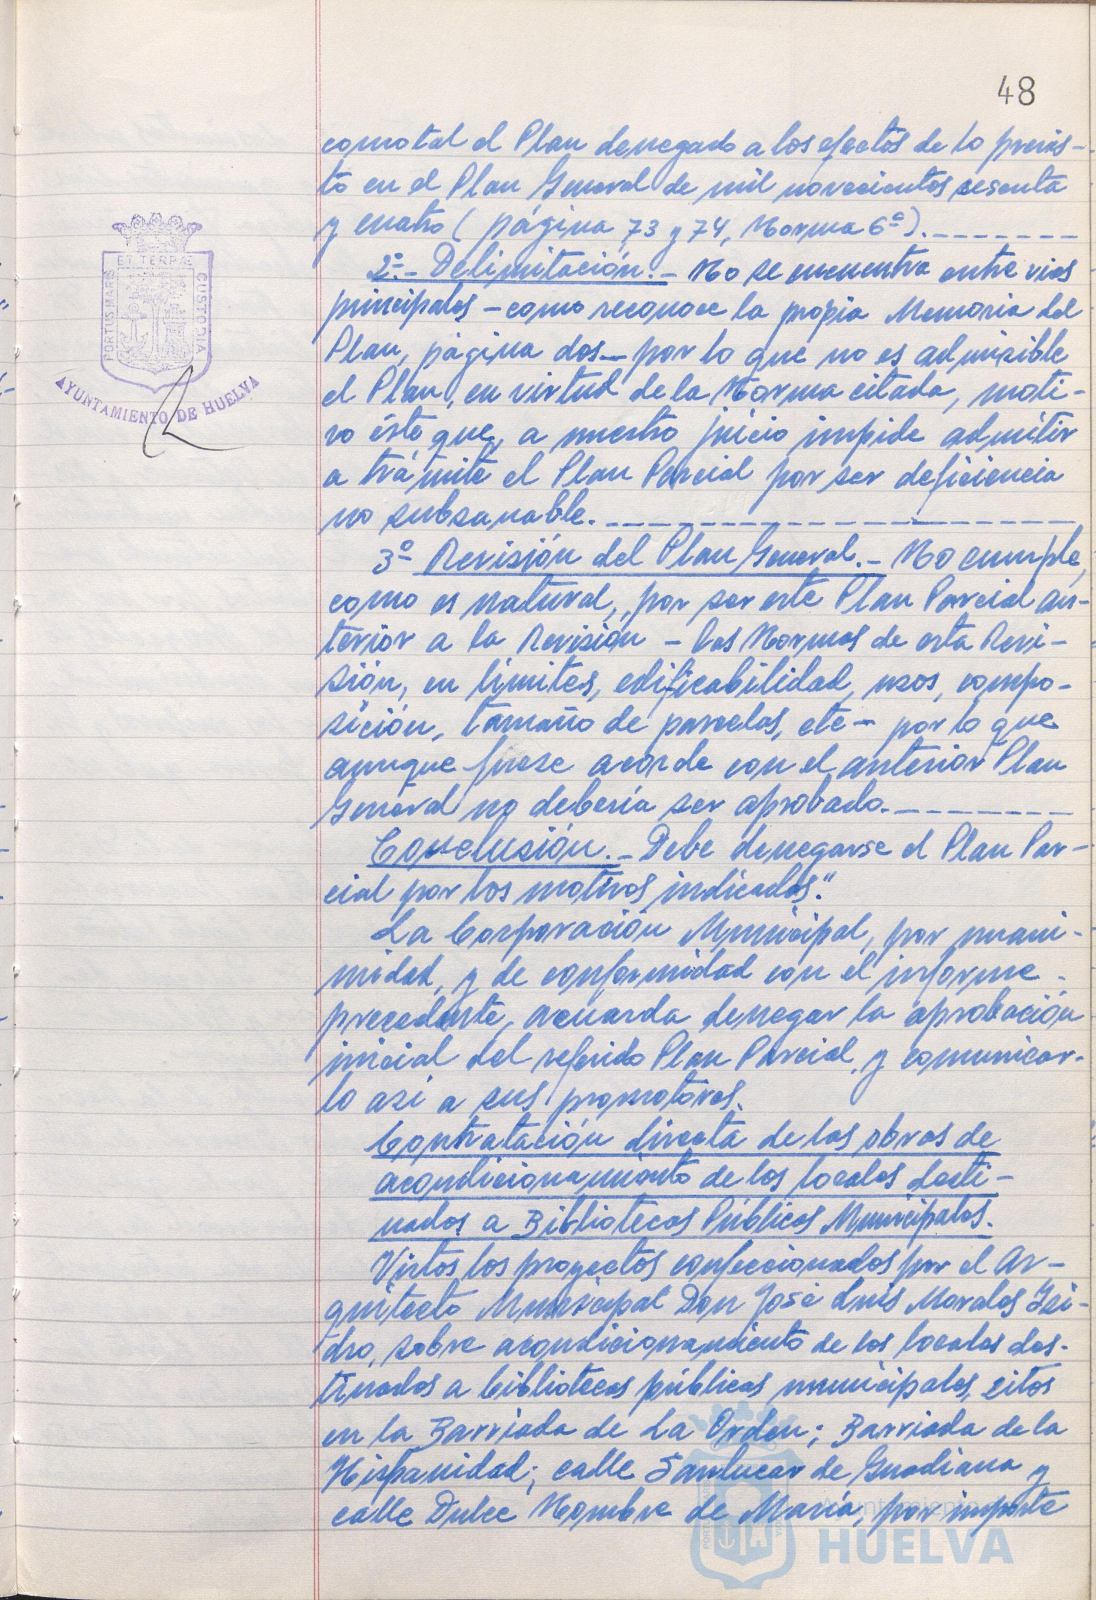 48
como tal el Plan denegado a los efectos de lo previs-
to en el Plan General de mil novecientos sesenta
y cuatro (página 73 y 74, Norma 6ª).
2º.- Delimitación.- No se encuentra entre vias
principales - como reconoce la propia Memoria del
Plan, página dos - por lo que no es admisible
el Plan, en virtud de la Norma citada, moti-
vo éste que, a nuestro juicio impide admitir
a trámite el Plan Parcial por ser deficiencia
no subsanable.
3º Revisión del Plan General.- No cumple,
como es natural, por ser este Plan Parcial an-
terior a la Revisión - las Normas de esta Revi-
sión, en límites, edificabilidad, usos, compo-
sición, tamaño de parcelas, etc - por lo que
aunque fuese acorde con el anterior Plan
General no debería ser aprobado.
Conclusión.- Debe denegarse el Plan Par-
cial por los motivos indicados."
La Corporación Municipal, por unani-
midad, y de conformidad con el informe
precedente, acuerda denegar la aprobación
inicial del referido Plan Parcial, y comunicar-
lo asi a sus promotores.
Contratación directa de las obras de
acondicionamiento de los locales desti-
nados a Bibliotecas Públicas Municipales.
Vistos los proyectos confeccionados por el Ar-
quitecto Municipal Don José Luis Morales Isi-
dro, sobre acondicionamiento de los locales des-
tinados a bibliotecas públicas municipales, sitos
en la Barriada de La Orden; Barriada de la
Hispanidad; calle Sanlucar de Guadiana y
calle Dulce Nombre de María, por importe
PORTUS MARIS
ET TERRÆ
CUSTODIA
AYUNTAMIENTO DE HUELVA
Ayuntamiento
HUELVA